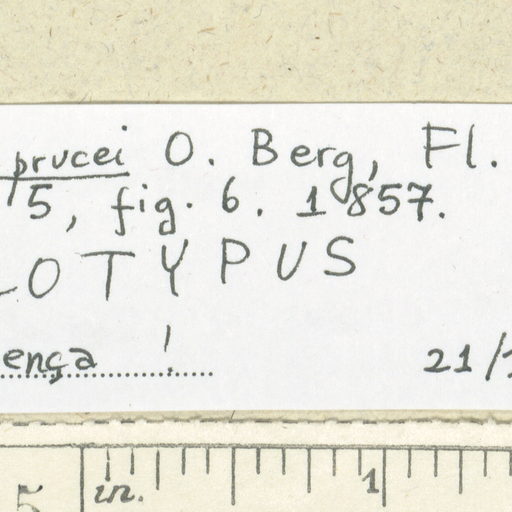 prucei O. Berg, Fl.
5, fig. 6. 1857.
LOTYPUS
ença !
21/1
5 in. 1